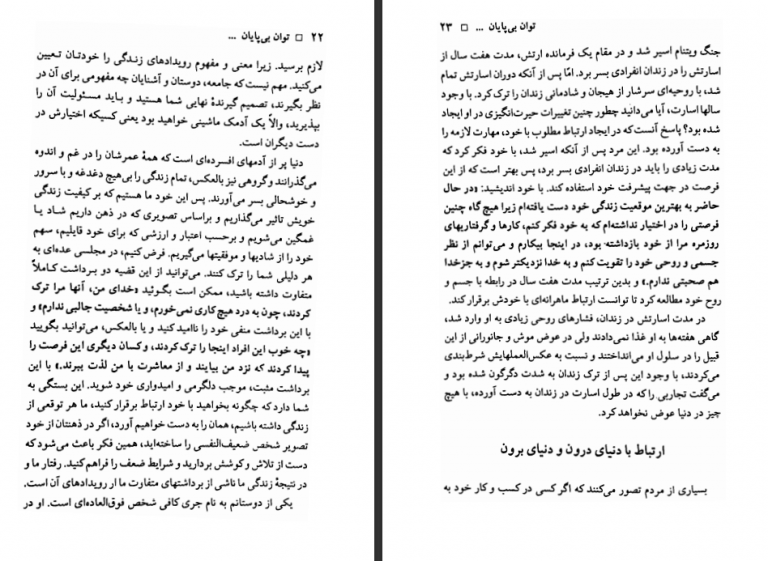 ۲۲ □ توان بی‌پایان ...
لازم برسید. زیرا معنی و مفهوم رویدادهای زندگی را خودتان تعیین
می‌کنید. مهم نیست که جامعه، دوستان و آشنایان چه مفهومی برای آن در
نظر بگیرند، تصمیم گیرندهٔ نهایی شما هستید و باید مسئولیت آن را
بپذیرید، والاّ یک آدمک ماشینی خواهید بود یعنی کسیکه اختیارش در
دست دیگران است.
دنیا پر از آدمهای افسرده‌ای است که همهٔ عمرشان را در غم و اندوه
می‌گذرانند و گروهی نیز بالعکس، تمام زندگی را بی‌هیچ دغدغه و با سرور
و خوشحالی بسر می‌آورند. پس این خود ما هستیم که بر کیفیت زندگی
خویش تاثیر می‌گذاریم و براساس تصویری که در ذهن داریم شاد یا
غمگین می‌شویم و برحسب اعتبار و ارزشی که برای خود قایلیم، سهم
خود را از شادیها و موفقیتها می‌گیریم. فرض کنیم، در مجلسی عده‌ای به
هر دلیلی شما را ترک کنند. می‌توانید از این قضیه دو برداشت کاملاً
متفاوت داشته باشید، ممکن است بگوئید «خدای من، آنها مرا ترک
کردند، چون به درد هیچ کاری نمی‌خورم، و یا شخصیت جالبی ندارم» و
با این برداشت منفی خود را ناامید کنید و یا بالعکس، می‌توانید بگویید
«چه خوب این افراد اینجا را ترک کردند، و کسان دیگری این فرصت را
پیدا کردند که نزد من بیایند و از معاشرت با من لذت ببرند.» با این
برداشت مثبت، موجب دلگرمی و امیدواری خود شوید. این بستگی به
شما دارد که چگونه بخواهید با خود ارتباط برقرار کنید، ما هر توقعی از
زندگی داشته باشیم، همان را به دست خواهیم آورد، اگر در ذهنتان از خود
تصویر شخص ضعیف‌النفسی را ساخته‌اید، همین فکر باعث می‌شود که
دست از تلاش و کوشش بردارید و شرایط ضعف را فراهم کنید. رفتار ما و
در نتیجهٔ زندگی ما ناشی از برداشتهای متفاوت ما از رویدادهای آن است.
یکی از دوستانم به نام جری کافی شخص فوق‌العاده‌ای است. او در
توان بی‌پایان ... □ ۲۳
جنگ ویتنام اسیر شد و در مقام یک فرمانده ارتش، مدت هفت سال از
اسارتش را در زندان انفرادی بسر برد. امّا پس از آنکه دوران اسارتش تمام
شد، با روحیه‌ای سرشار از هیجان و شادمانی زندان را ترک کرد. با وجود
سالها اسارت، آیا می‌دانید چطور چنین تغییرات حیرت‌انگیزی در او ایجاد
شده بود؟ پاسخ آنست که در ایجاد ارتباط مطلوب با خود، مهارت لازمه را
به دست آورده بود. این مرد پس از آنکه اسیر شد، با خود فکر کرد که
مدت زیادی را باید در زندان انفرادی بسر برد، پس بهتر است که از این
فرصت در جهت پیشرفت خود استفاده کند. با خود اندیشید: «در حال
حاضر به بهترین موقعیت زندگی خود دست یافته‌ام زیرا هیچ گاه چنین
فرصتی را در اختیار نداشته‌ام که به خود فکر کنم، کارها و گرفتاریهای
روزمره مرا از خود بازداشته بود، در اینجا بیکارم و می‌توانم از نظر
جسمی و روحی خود را تقویت کنم و به خدا نزدیکتر شوم و به جز خدا
هم صحبتی ندارم.» و بدین ترتیب مدت هفت سال در رابطه با جسم و
روح خود مطالعه کرد تا توانست ارتباط ماهرانه‌ای با خودش برقرار کند.
در مدت اسارتش در زندان، فشارهای روحی زیادی به او وارد شد،
گاهی هفته‌ها به او غذا نمی‌دادند ولی در عوض موش و جانورانی از این
قبیل را در سلول او می‌انداختند و نسبت به عکس‌العملهایش شرط‌بندی
می‌کردند، با وجود این پس از ترک زندان به شدت دگرگون شده بود و
می‌گفت تجاربی را که در طول اسارت در زندان به دست آورده، با هیچ
چیز در دنیا عوض نخواهد کرد.
ارتباط با دنیای درون و دنیای برون
بسیاری از مردم تصور می‌کنند که اگر کسی در کسب و کار خود به